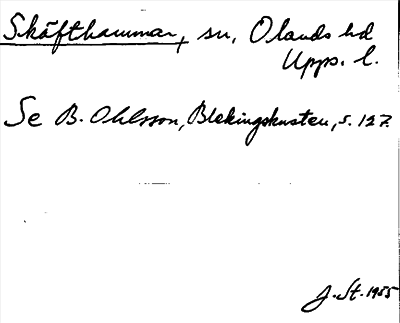 Skäfthammar, sn, Olands hd
Upps. l.
Se B. Ohlsson, Blekingskusten, s. 127.
J. St. 1955